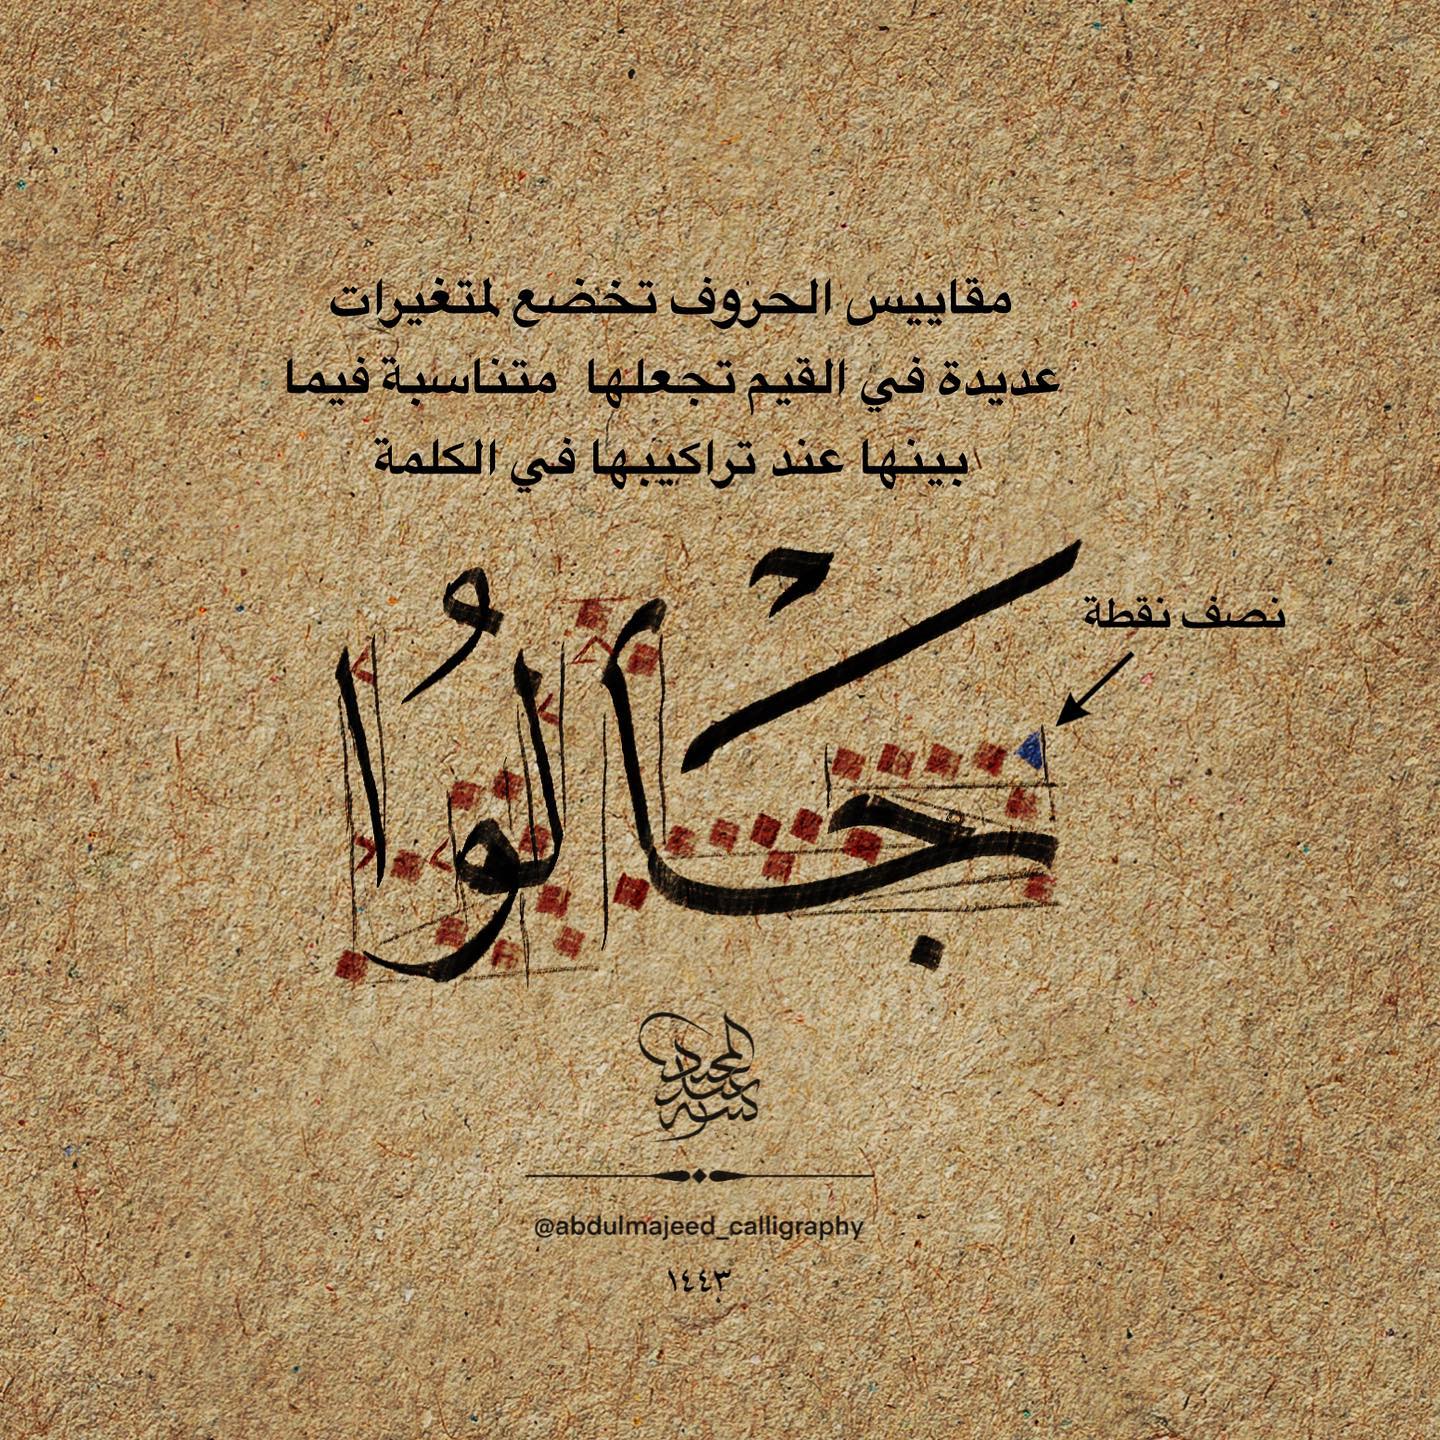 مقاييس الحروف تخضع لمتغيرات
عديدة في القيم تجعلها متناسبة فيما
بينها عند تراكيبها في الكلمة
نصف نقطة
جَالُوا
كتبه عبد المجيد
@abdulmajeed_calligraphy
١٤٤٣